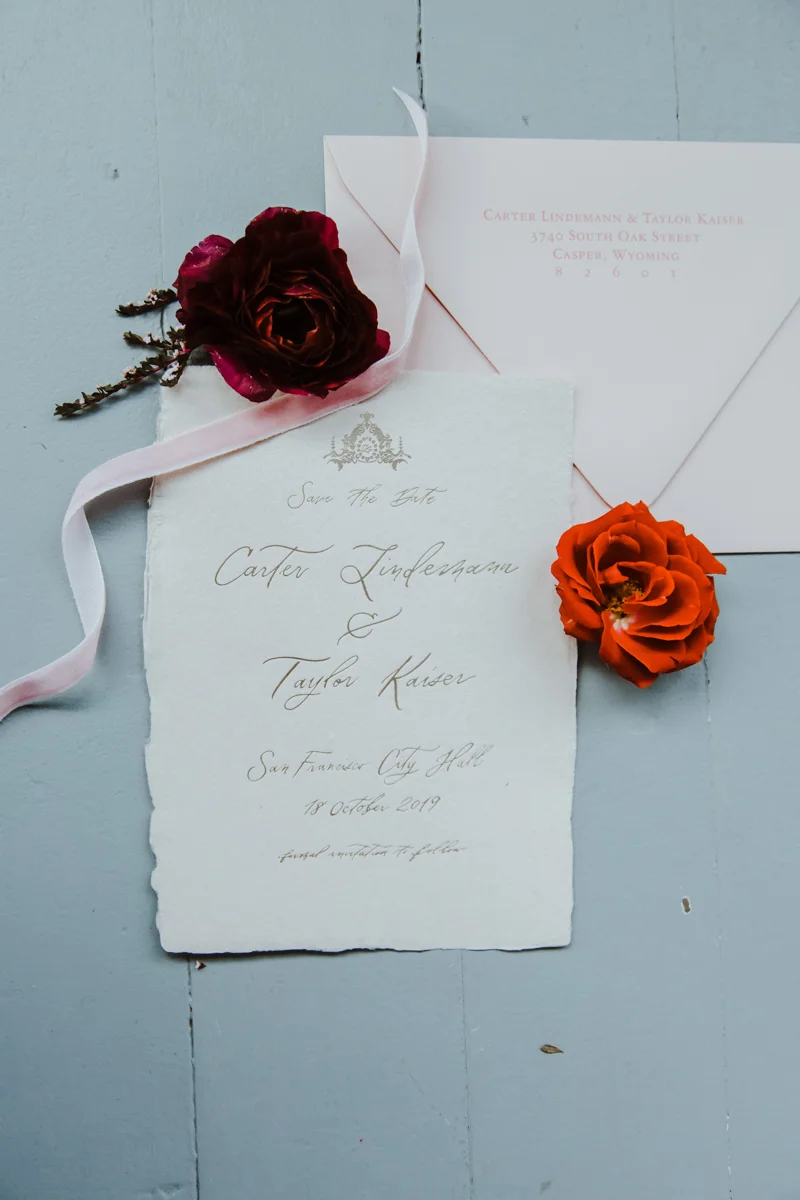 Carter Lindemann & Taylor Kaiser
3740 South Oak Street
Casper, Wyoming
82601
Save the Date
Carter Lindemann
&
Taylor Kaiser
San Francisco City Hall
18 October 2019
formal invitation to follow